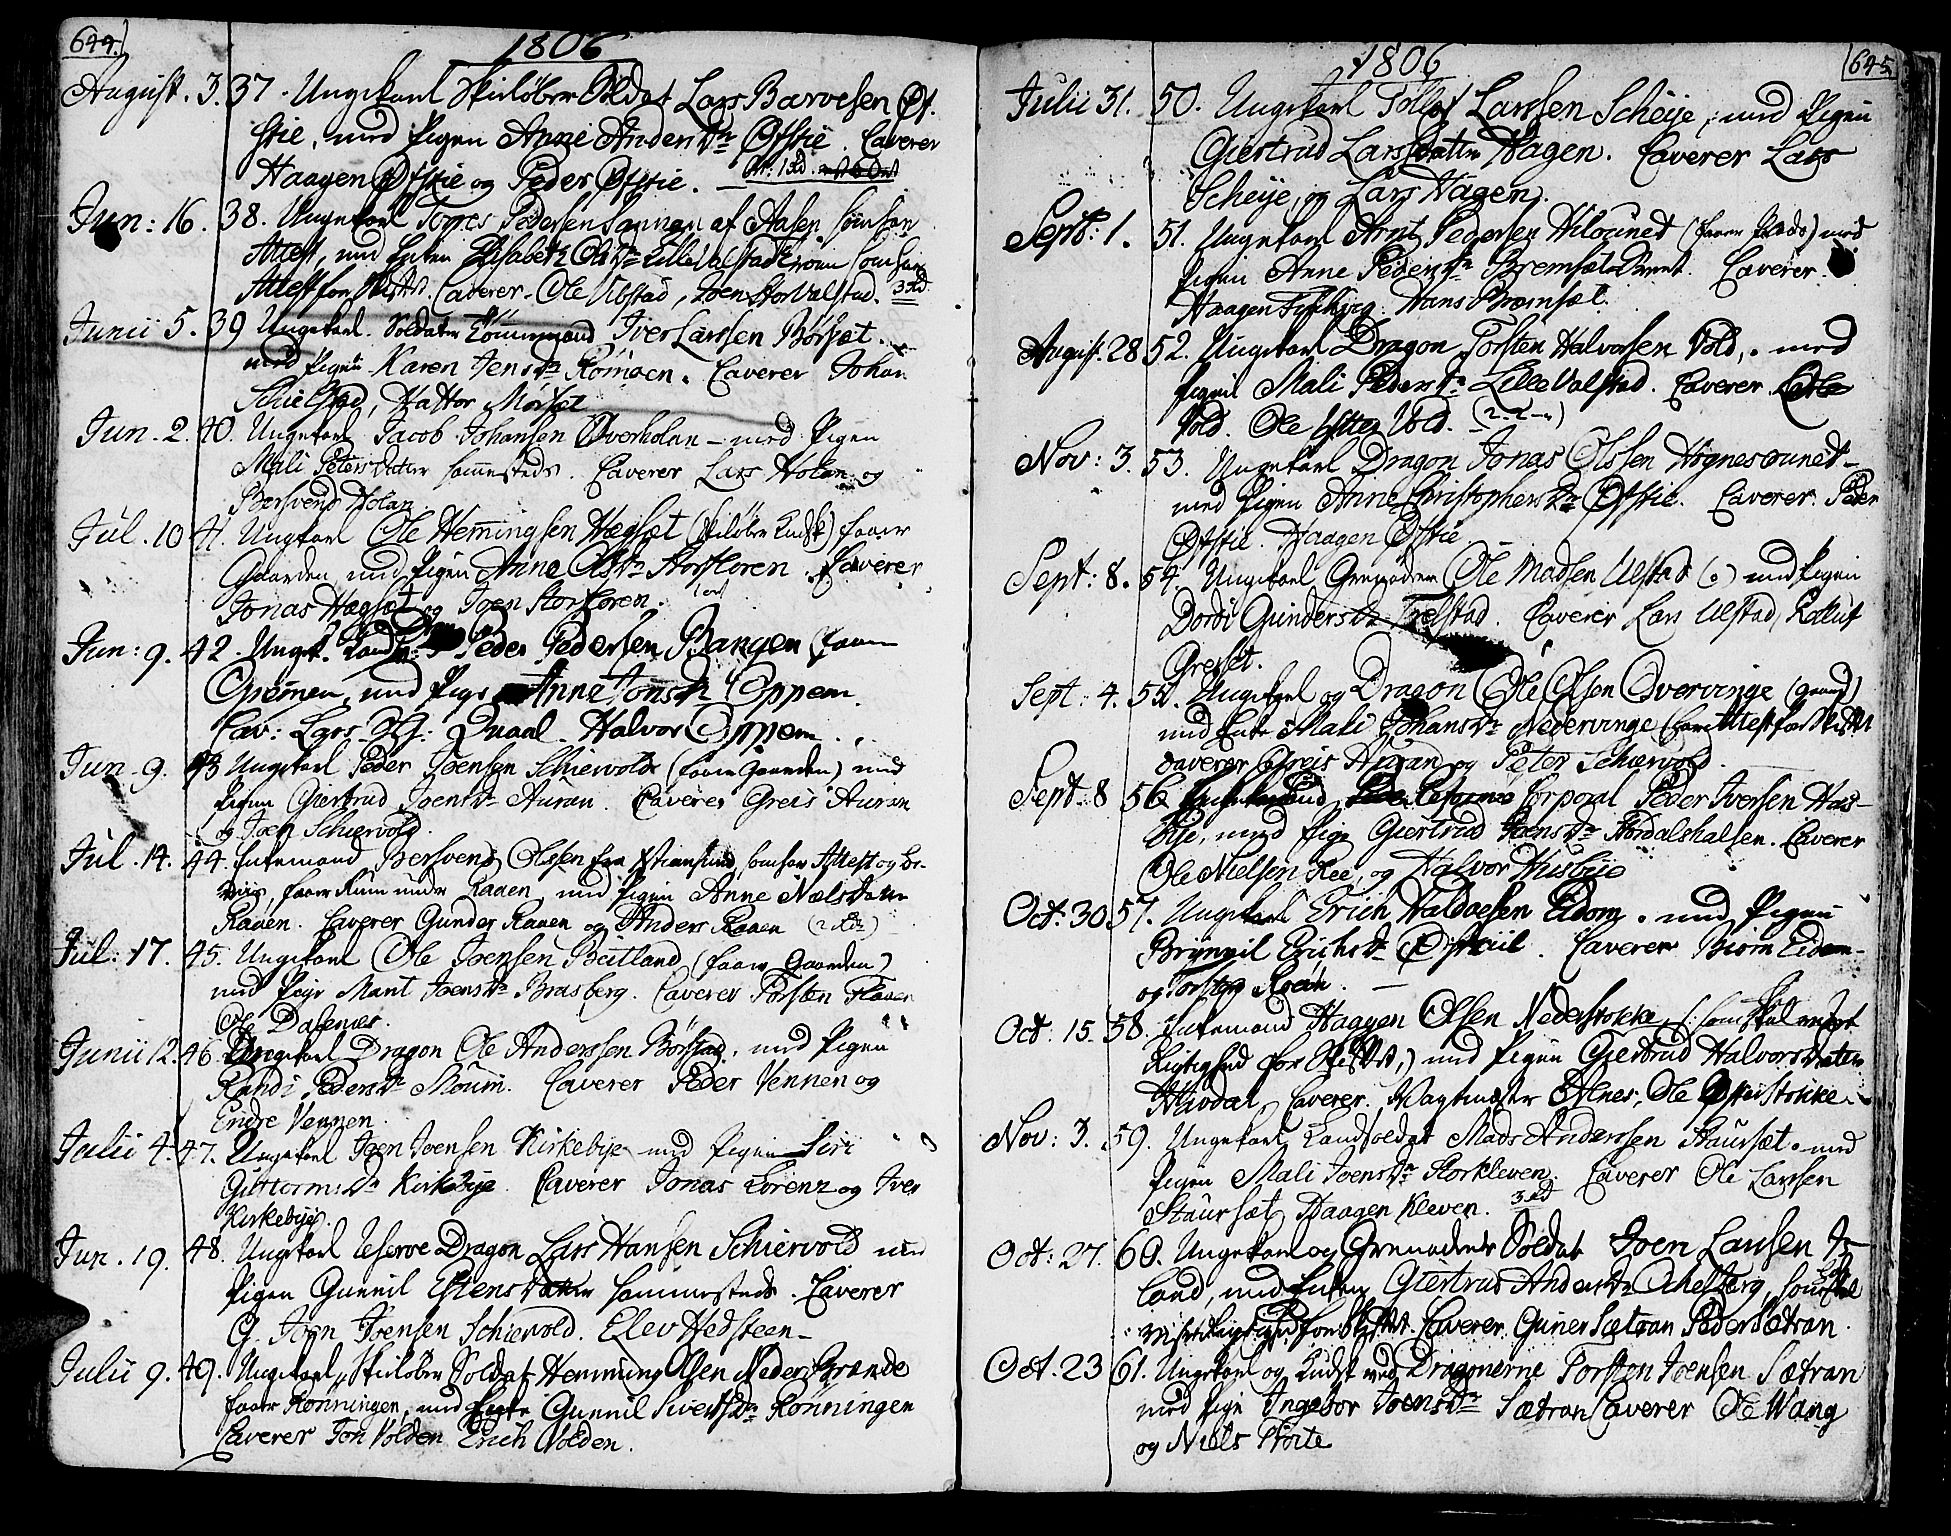 644.
1806
August. 3. 37. Ungekarl Skieløber Soldat Lars Barvesen Øf-
stie, med Pigen Anne Anders Dr Øfstie. Caverer
Haagen Øfstie og Peder Øfstie.
Jun: 16. 38. Ungekarl Tomes Pedersen af Aasen som har
Attest, med Enken Elisabeth Ols Dr Lille Valstad som har
Attest for Skiftet. Caverer Ole Vibstad, Joen StorValstad. 3 Rd
Junii 5. 39 Ungekarl. Soldater Tømmermand Iver Larssen Børsæt.
med Pigen Karen Jens Dr Rømoen. Caverer Johan
Schielstad, Hattor Morset
Jun. 2. 40. Ungekarl Jacob Johansen Øverholan - med Pigen
Mali Peters Datter sammesteds. Caverer Lars Holan og
Bersvend Holan
Jul. 10 41. Ungkarl Ole Hemingsen Hægset (Skieløber Kudsk) faaer
Gaarden, med Pigen Anne Ols Dr Storfloren. Caverer
Jonas Hægset og Joen Storfloren.
Jun: 9. 42. Ungk. Peder Pedersen Bangen (faaer
Opemen, med Pige Anne Jons Dr Oppem.
Cav: Lars Qvaal - Halvor Oppem.
Jun. 9. 43 Ungekarl Peder Joensen Schiervold (faaer Gaarden) med
Pigen Giertrud Joens Dr Auran. Caverer Greis Auran
og Joen Schiervold.
Jul. 14. 44. Enkemand Bersvend Olssen fra Xstiansund, som har Attest og
faaer Rum under Raaen, med Pigen Anne Niels Datter
Raaen. Caverer Gunder Raaen og Anders Raaen (2 Rdr)
Jul: 17. 45. Ungekarl Ole Joensen Beitland (faaer Gaarden)
med Pige Marit Joens Dr Brasberg. Caverer Torsten Flaaen
Ole Dalemes.
Junii 12. 46. Ungekarl Dragon Ole Anderssen Børstad, med Pigen
Randi Peders Dr Moum. Caverer Peder Vennen og
Endre Vennen.
Julii 4. 47. Ungekarl Joen Joensen Kirkebye med Pigen Siri
Guttorms Dr Kirkebye. Caverer Jonas Lorenz og Iver
Kirkebye.
Jun. 19. 48. Ungekarl Reserve Dragon Lars Hansen Schiervold med
Pigen Gunnil Estens Datter sammesteds. Caverer
Joen Joensen Schiervold. Elev Hedsteen
Julii 9. 49. Ungekarl, Skieløber Soldat Hemming Olsen Neder Grande
faaer Rønningen, med Enke Gunnil Siverts Dr Rønningen
Caverer Jon Volden Erich Volden.
645
1806
Julii 31. 50. Ungekarl Tollef Larssen Scheije, med Pigen
Giertrud Lars Datter Hagen. Caverer Lars
Scheije, og Lars Hagen.
Sept: 1. 51. Ungekarl Arnt Pedersen Hilbunet (faaer Plads) med
Pigen Anne Peders Dr Bremset. Caverer
Haagen Hans Bremset.
August. 28 52. Ungekarl Dragon Torsten Halvorsen Vold, med
Pigen Mali Peders Dr Lille Valstad. Caverer
Vold. Ole Ytter Vold.
Nov: 3. 53. Ungekarl Dragon Jonas Olssen Høgnesaunet
med Pigen Anne Christophers Dr Øfstie. Caverer Peder
Øfstie. Haagen Øfstie
Sept: 8. 54. Ungekarl Grenadeer Ole Madsen Ulstad med Pigen
Dordi Gunders Dr Trelstad. Caverer Lars Ulstad, Kollut
Gresset.
Sept: 4. 55. Ungekarl og Dragon Ole Olsen Overvinge (Gaard)
med Enke Mali Johans Dr Nedervinge (faaer Attest for Skiftet
Caverer Greis Auran og Peter Schiervold
Sept: 8 56 Corporal Peder Iversen Hus-
bye, med Pige Giertrud Joens Dr Stordalshalsen. Caverer
Ole Nielsen Ree, og Halvor Husbye
Oct: 30 57. Ungekarl Erich Haldoesen Eidom. med Pigen
Brynnil Erichs Dr Øfstie. Caverer Biørn Eidem
og Torsten
Oct: 15. 58. Enkemand Haagen Olsen Nedrestokke, (som skal
Rigtighed for Skiftet,) med Pigen Giertrud Halvors Datter
Havdal, Caverer, Vagtmester Elnes, Ole Øfstistokke
Nov: 3. 59. Ungekarl Landsoldat Mads Anderssen Staursæt. med
Pigen Mali Joens Dr Storkleven. Caverer Ole Larssen
Staursæt Haagen Kleven. 3 Rd
Oct: 27. 60. Ungekarl og Grenadeer Soldat Joen Larssen In-
land, med Enken Giertrud Anders Dr Achelberg, som skal
vise Rigtighed for Skiftet. Caverer. Guner Sætran Peder Sætran.
Oct: 23 61. Ungekarl og Kudsk ved Dragonerne Torsten Joensen Sætran
med Pige Ingebor Joens Dr Sætran Caverer Ole Wang
og Niels Floite